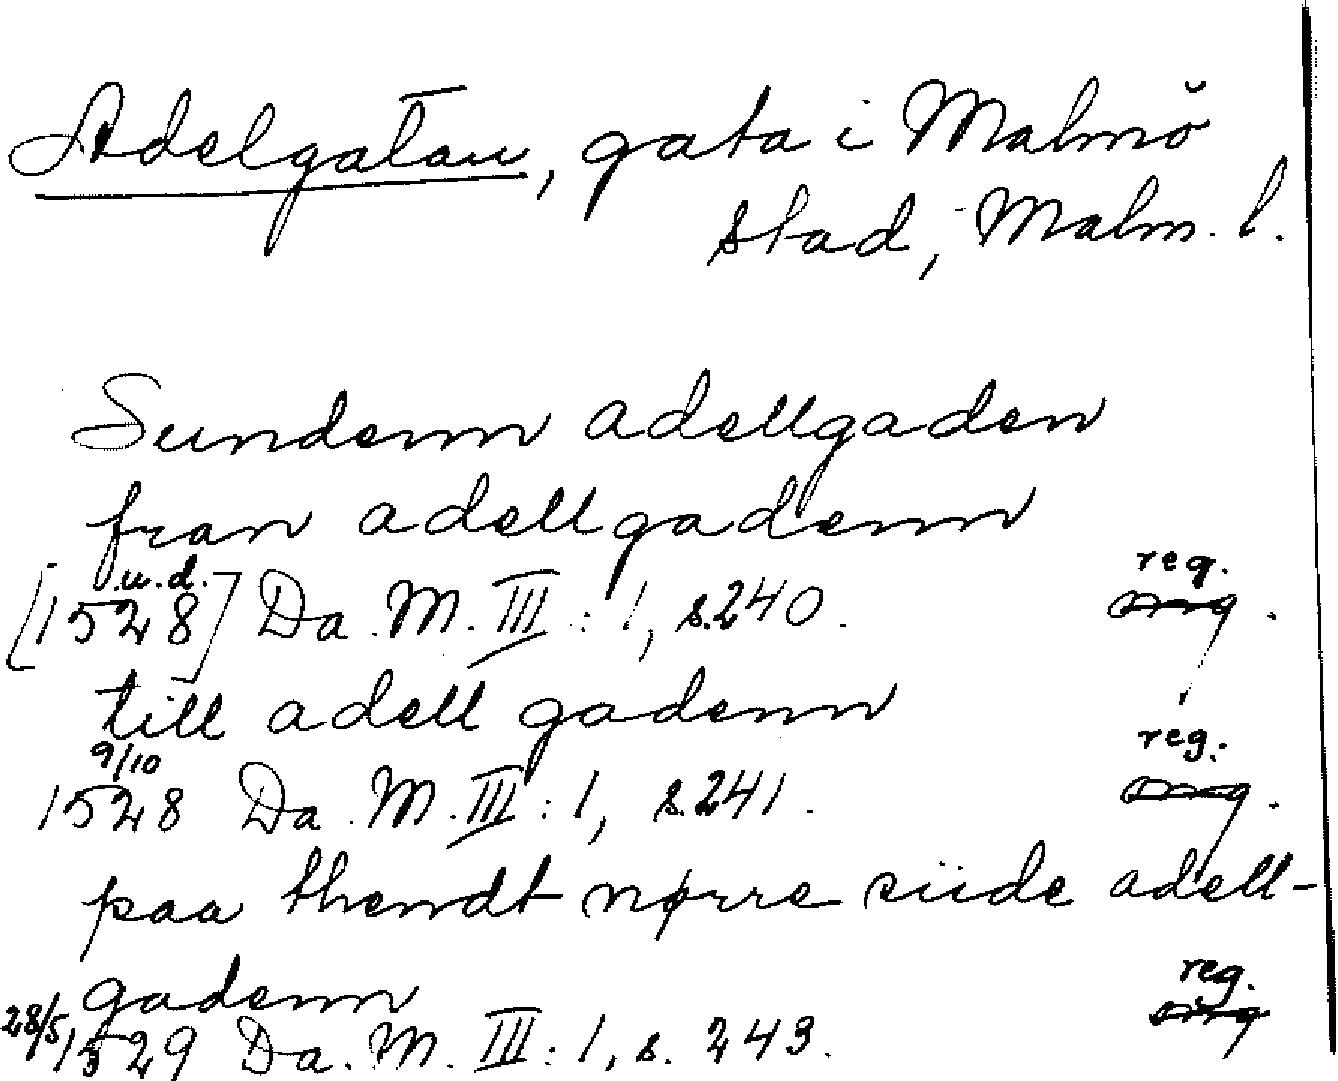 Adelgatan, gata i Malmö
stad, Malm. l.
Sundenn adellgaden
fran adellgadenn
[1528] u.d. Da. M. III: 1, s. 240. reg.
till adell gadenn
9/10 1528 Da. M. III: 1, s. 241. reg.
paa thendt nørre siide adell-
gadenn
28/5 1529 Da. M. III: 1, s. 243. reg.